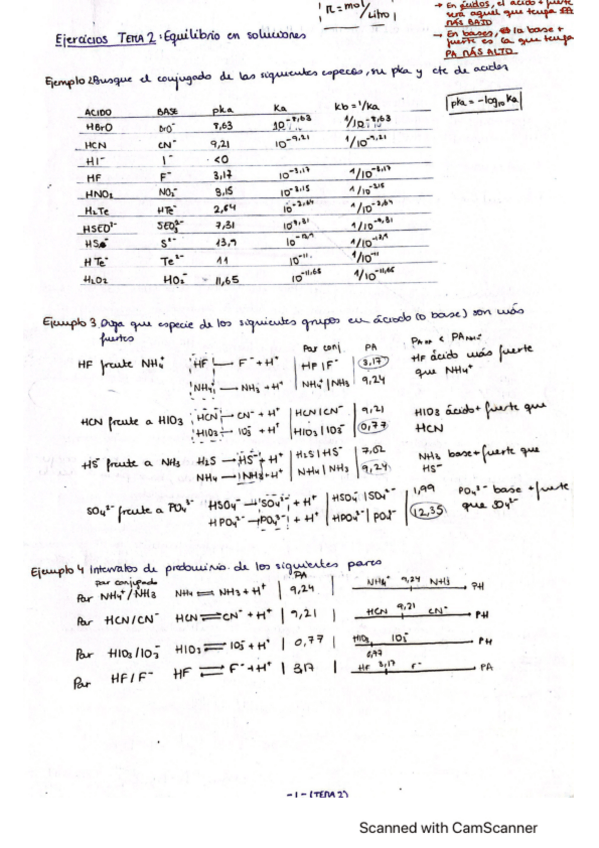 n = mol/Litro
→ En ácidos, el ácido + fuerte
será aquel que tenga
MÁS BAJO
→ En bases, la base +
fuerte es la que tenga
PA MÁS ALTO
Ejercicios TEMA 2: Equilibrio en soluciones
Ejemplo 2. Busque el conjugado de las siguientes especies, su pka y cte de acidez
pka = -log₁₀ Ka
ACIDO BASE pka Ka Kb = 1/Ka
HBrO BrO⁻ 8,63 10⁻⁸,⁶³ 1/10⁻⁸,⁶³
HCN CN⁻ 9,21 10⁻⁹,²¹ 1/10⁻⁹,²¹
HI⁻ I⁻ <0
HF F⁻ 3,17 10⁻³,¹⁷ 1/10⁻³,¹⁷
HNO₂ NO₂⁻ 3,15 10⁻³,¹⁵ 1/10⁻³,¹⁵
H₂Te HTe⁻ 2,64 10⁻²,⁶⁴ 1/10⁻²,⁶⁴
HSEO₃⁻ SEO₃²⁻ 7,31 1/10⁻⁷,³¹
HS⁻ S²⁻ 13,9
HTe⁻ Te²⁻ 11 10⁻¹¹ 1/10⁻¹¹
H₂O₂ HO₂⁻ 11,65 10⁻¹¹,⁶⁵ 1/10⁻¹¹,⁶⁵
Ejemplo 3. Diga que especie de los siguientes grupos en ácido (o base) son más
fuertes
Par conj. PA
HF frente NH₄⁺ HF — F⁻ + H⁺ | HF | F⁻ | 3,17 HF ácido más fuerte
NH₄⁺ — NH₃ + H⁺ | NH₄⁺ | NH₃ | 9,24 que NH₄⁺
HCN frente a HIO₃ HCN — CN⁻ + H⁺ | HCN | CN⁻ | 9,21 HIO₃ ácido + fuerte que
HIO₃ — IO₃⁻ + H⁺ | HIO₃ | IO₃⁻ | 0,77 HCN
HS⁻ frente a NH₃ H₂S — HS⁻ + H⁺ | H₂S | HS⁻ | 7,02 NH₃ base + fuerte que
NH₄ — NH₃ + H⁺ | NH₄ | NH₃ | 9,24 HS⁻
SO₄²⁻ frente a PO₄³⁻ HSO₄⁻ — SO₄²⁻ + H⁺ | HSO₄⁻ | SO₄²⁻ | 1,99 PO₄³⁻ base + fuerte
HPO₄²⁻ — PO₄³⁻ + H⁺ | HPO₄²⁻ | PO₄³⁻ | 12,35 que SO₄²⁻
Ejemplo 4 Intervalos de predominio de los siguientes pares
par conjugado PA
Par NH₄⁺/NH₃ NH₄ ⇌ NH₃ + H⁺ | 9,24 | NH₄⁺ 9,24 NH₃ PH
Par HCN/CN⁻ HCN ⇌ CN⁻ + H⁺ | 9,21 | HCN 9,21 CN⁻ PH
Par HIO₃/IO₃⁻ HIO₃ ⇌ IO₃⁻ + H⁺ | 0,77 | HIO₃ IO₃⁻ PH
0,77
Par HF/F⁻ HF ⇌ F⁻ + H⁺ | 3,17 | HF 3,17 F⁻ PA
-1-(TEMA 2)
Scanned with CamScanner